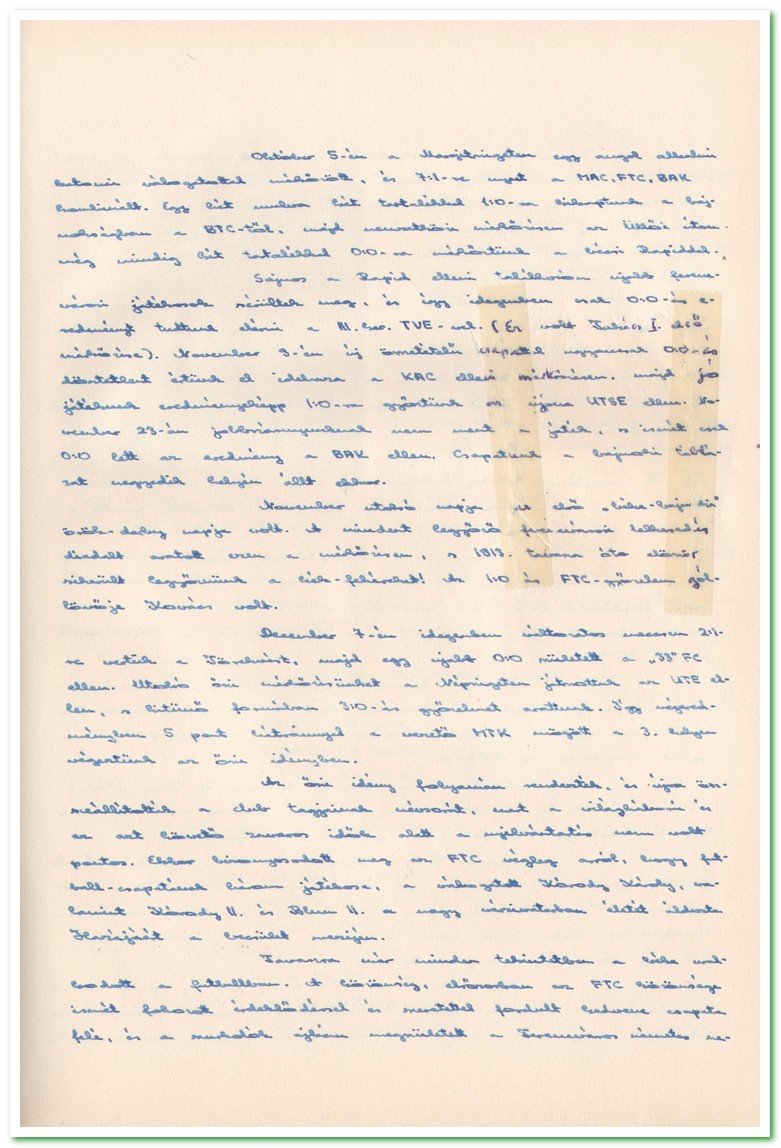 Október 5-én a Margitszigeten egy angol alkalmi
katonai válogatottal mérkőzött, és 7:1-re nyert a MAC, FTC, BAK
kombinált. Egy hét mulva két tartalékkal 1:0-ra kikaptunk a baj-
nokságban a BTC-től, majd nemzetközi mérkőzésen az Üllői úton
még mindig két tartalékkal 0:0-ra mérkőztünk a bécsi Rapiddal.
Sajnos a Rapid elleni találkozón ujabb ferenc-
városi játékosok sérültek meg, és így idegenben csak 0:0-ás e-
redményt tudtunk elérni a III. ker. TVE-vel. (Ez volt Takács I. első
mérkőzése). November 9-én új összetételű csapattal ugyancsak 0:0-ás
döntetlent értünk el idehaza a KAC elleni mérkőzésen, majd jó
játéknak eredményeképp 1:0-ra győztünk az újonc UTSE ellen. No-
vember 23-án jobbszárnyunknak nem ment a játék, s ismét csak
0:0 lett az eredmény a BAK ellen. Csapatunk a bajnoki táblá-
zat negyedik helyén állt ekkor.
November utolsó napja az első „béke-bajnoki"
örök-derby napja volt. A mindent legyőző ferencvárosi lelkesedés
diadalt aratott ezen a mérkőzésen, s 1913. tavasza óta először
sikerült legyőznünk a kék-fehéreket! Az 1:0 ás FTC-győzelem gól-
lövője Kovács volt.
December 7-én idegenben változatos meccsen 2:1-
re vertük a Törekvést, majd egy ujabb 0:0 született a „33" FC
ellen. Utolsó őszi mérkőzésünket a Népszigeten játszottuk az UTE el-
len, s kitünő formában 3:0-ás győzelmet arattunk. Így végered-
ményben 5 pont hátránnyal a vezető MTK mögött a 3. helyen
végeztünk az őszi idényben.
Az őszi idény folyamán rendezték, és újra ösz-
szeállították a club tagjainak névsorát, mert a világháború és
az azt követő zavaros idők alatt a nyilvántartás nem volt
pontos. Ekkor bizonyosodott meg az FTC végleg arról, hogy fut-
ball-csapatának három játékosa, a válogatott Kárody Károly, va-
lamint Kárody II. és Blum II. a nagy világviharban életét áldozta
Hazájáért a becsület mezején.
Tavaszra már minden tekintetben a béke ural-
kodott a futballban. A közönség, elsősorban az FTC közönsége
ismét fokozott érdeklődéssel és szeretettel fordult kedvenc csapata
felé, és a szurkolók ajkán megszületett a Ferencváros németes ne-